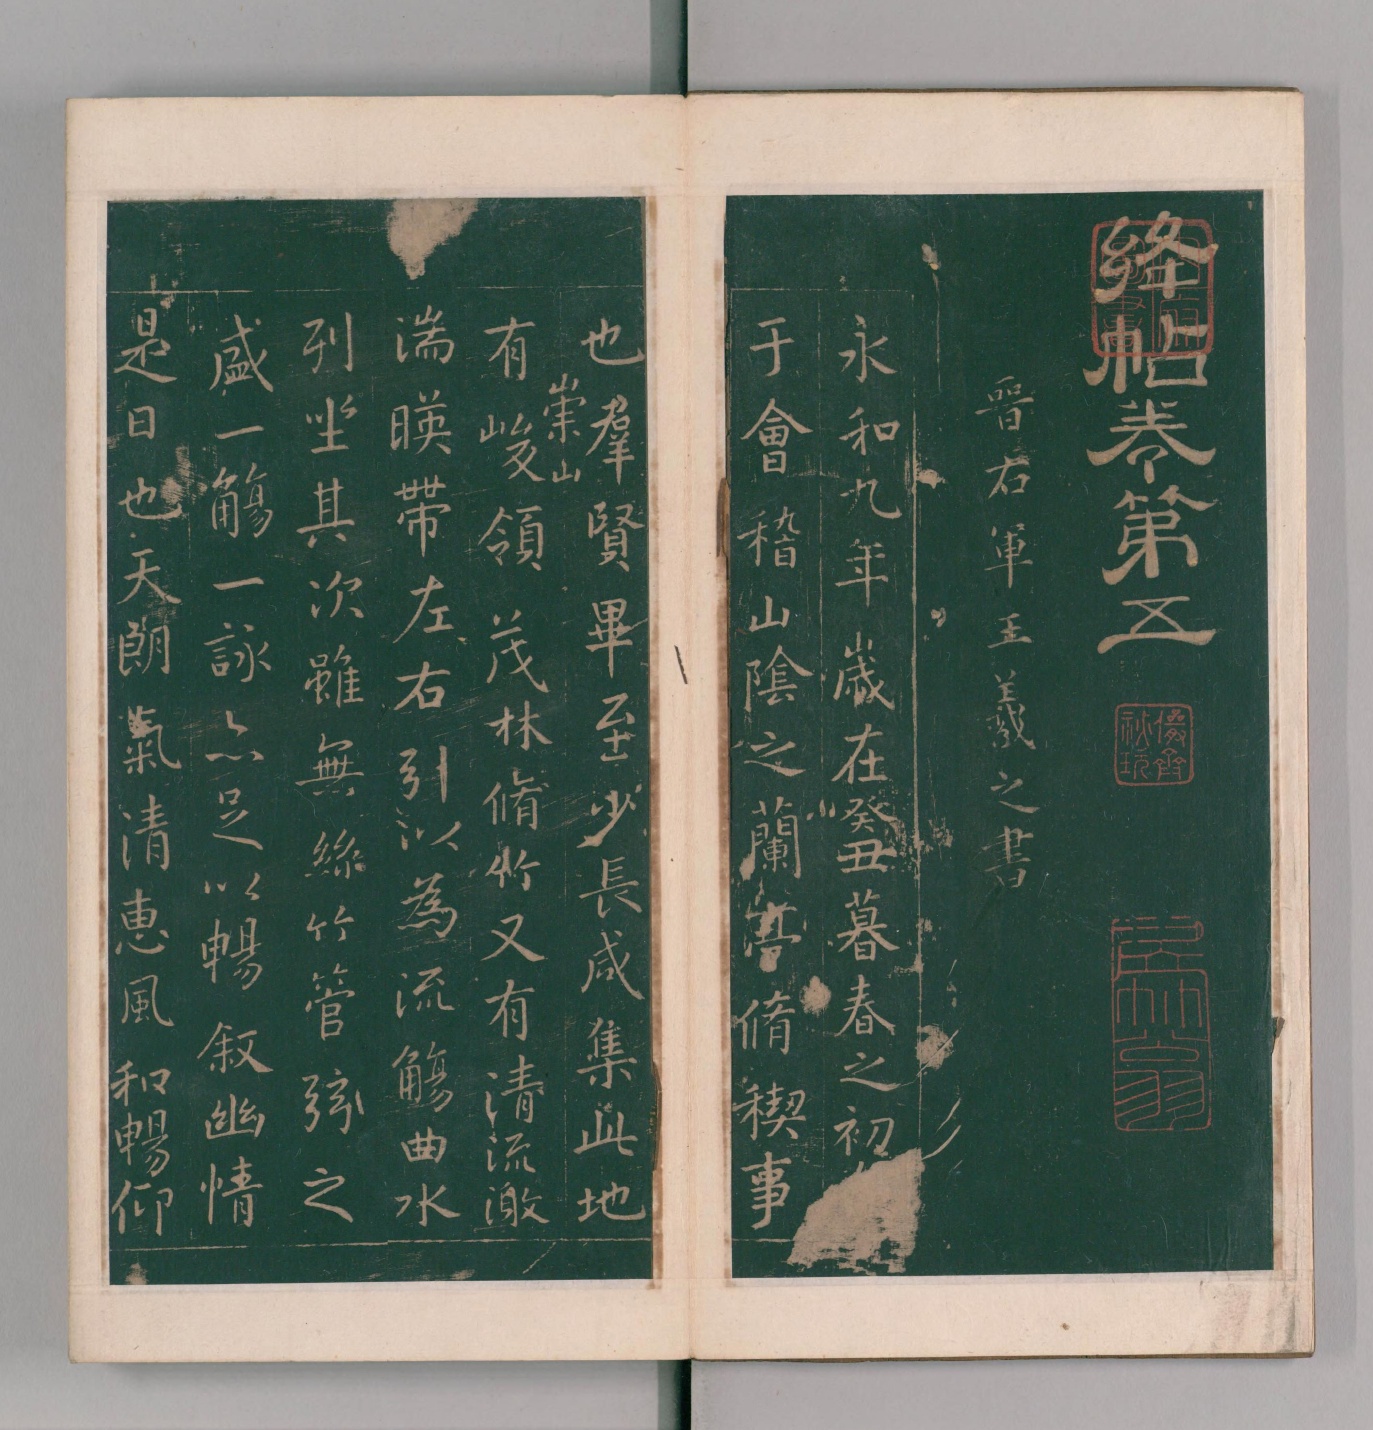 絳帖卷第五
晉右軍王羲之書
永和九年歲在癸丑暮春之初
于會稽山陰之蘭亭脩禊事
也羣賢畢至少長咸集此地
有崇山峻領茂林脩竹又有清流激
湍暎帶左右引以為流觴曲水
列坐其次雖無絲竹管弦之
盛一觴一詠亦足以暢叙幽情
是日也天朗氣清惠風和暢仰